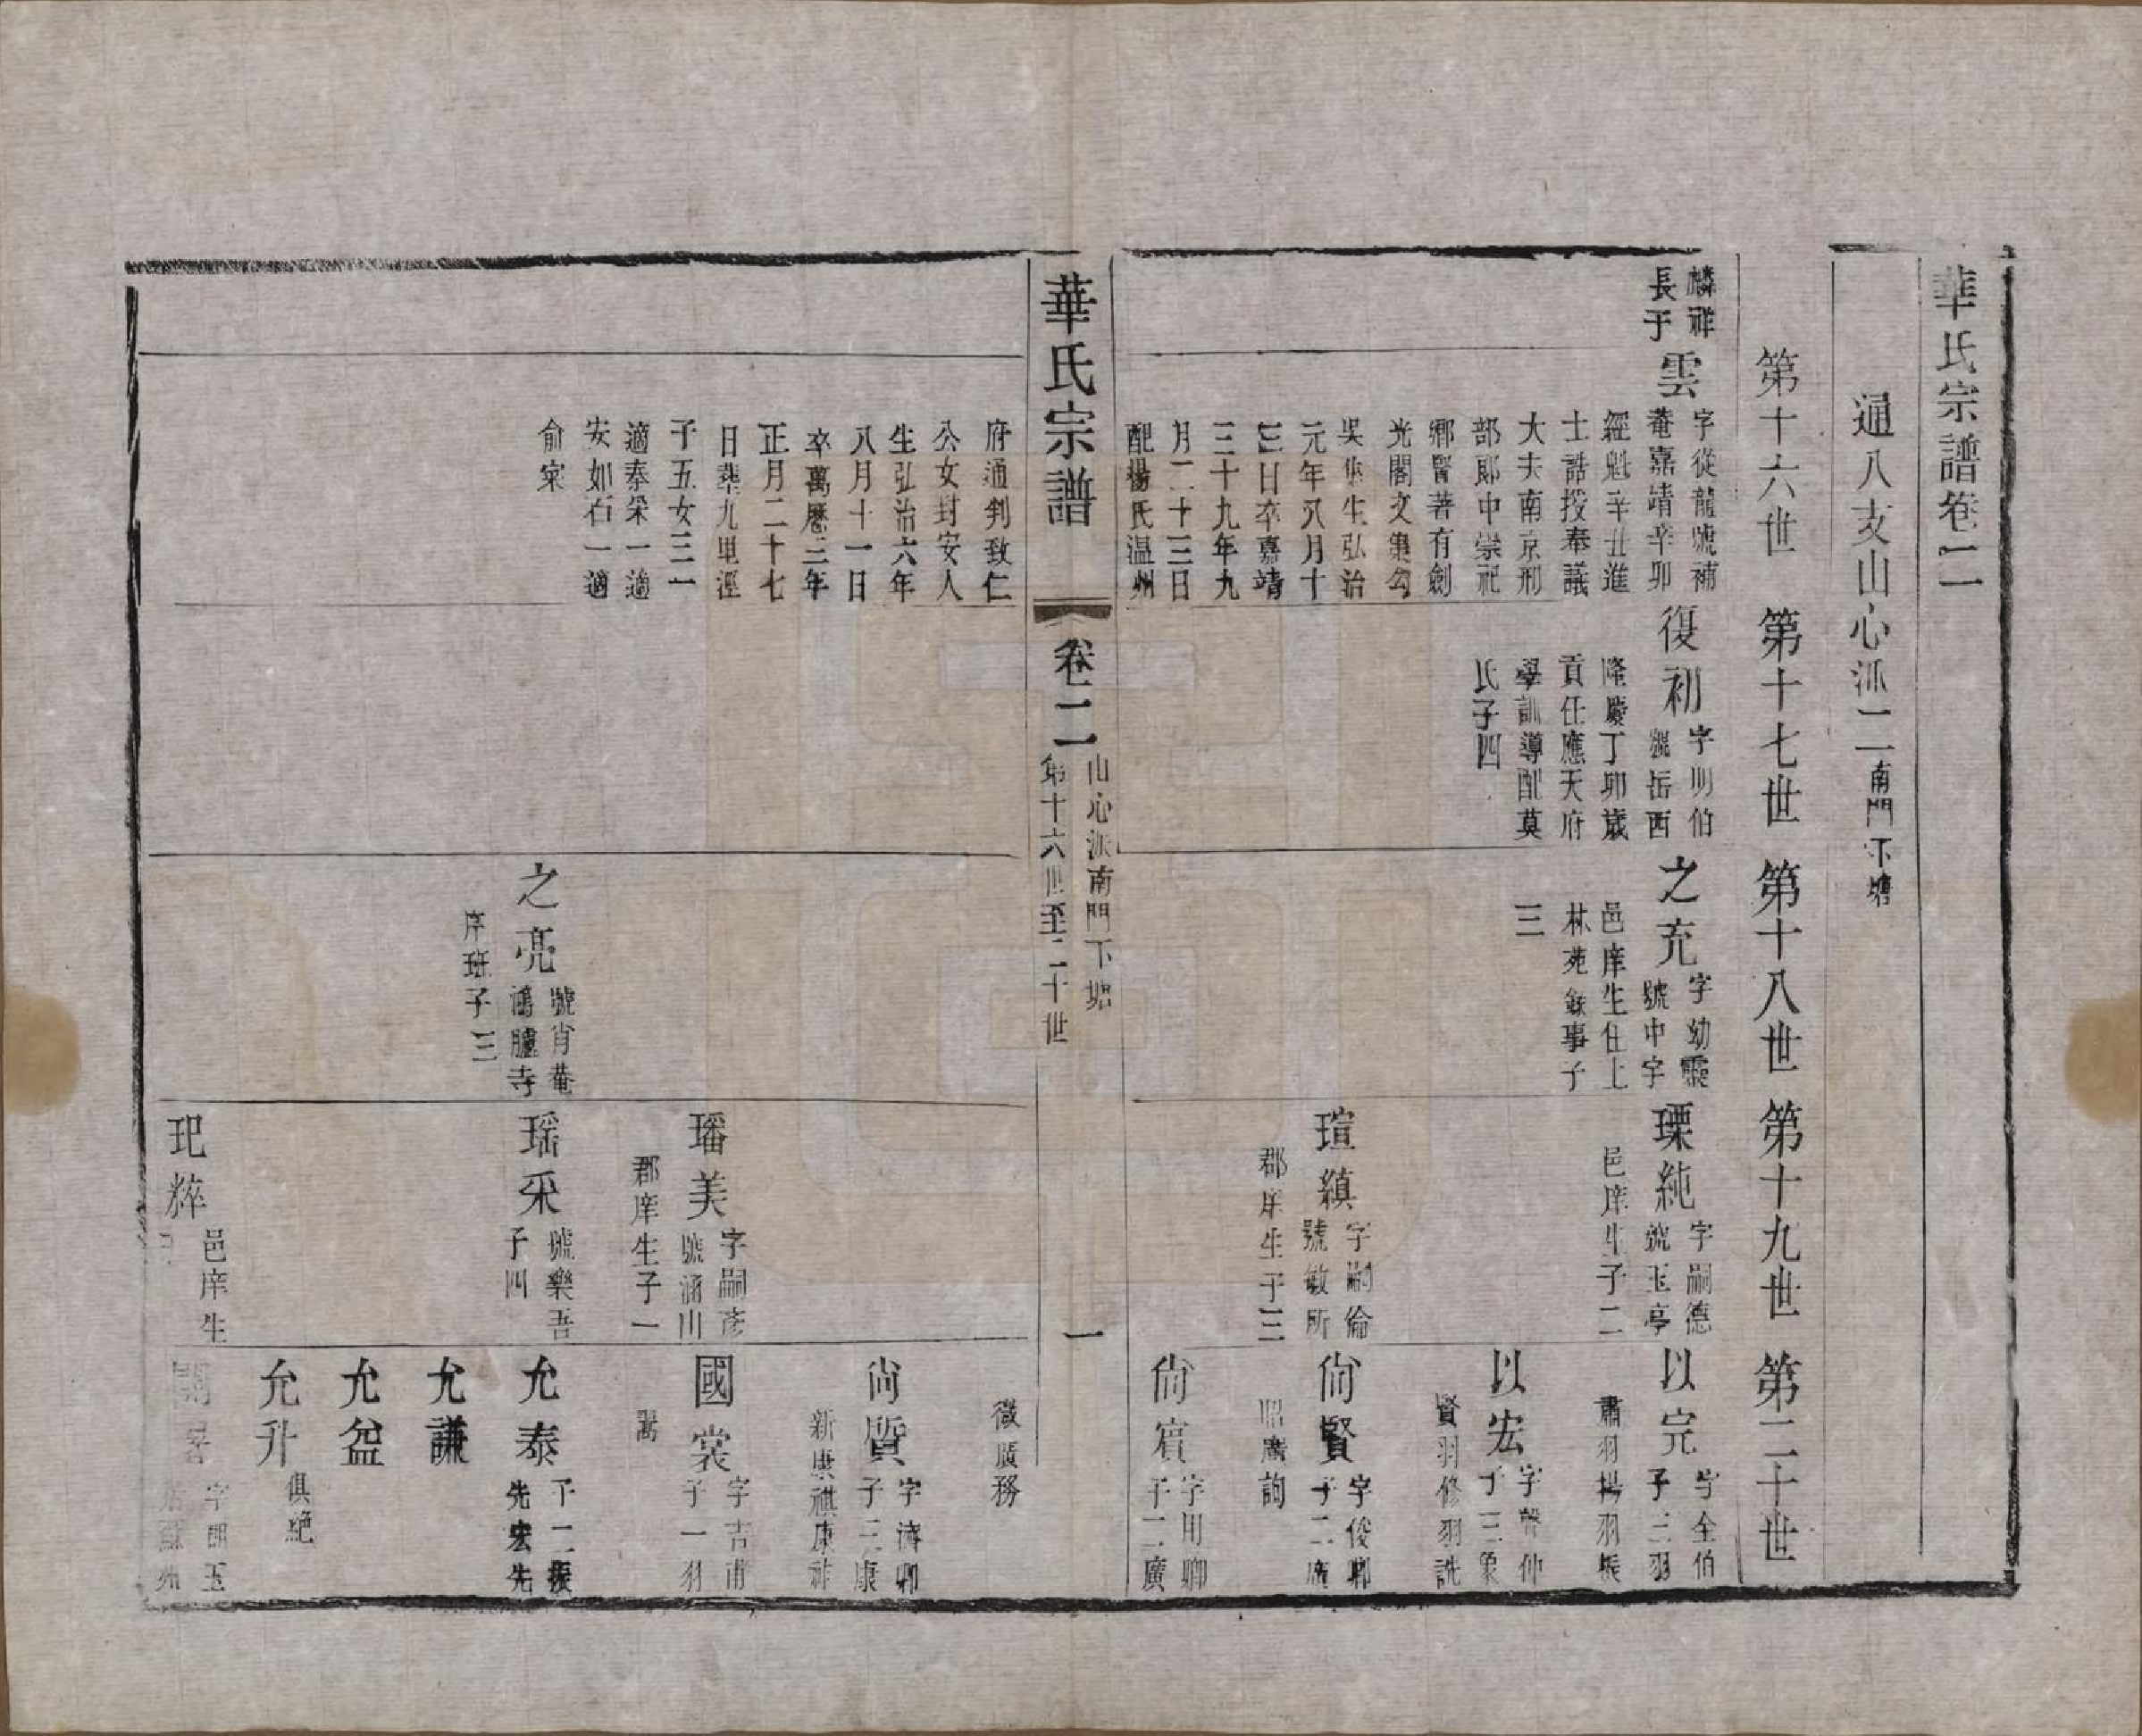 華氏宗譜卷二一
通八支山心派二一南門下塘
第十六世
第十七世
第十八世
第十九世
第二十世
麟祥
長子
雲
字從龍號補
菴嘉靖辛卯
經魁辛丑進
士誥授奉議
大夫南京刑
部郎中崇祀
鄉賢著有劍
光閣文集勾
吳集生弘治
元年八月十
三日卒嘉靖
三十九年九
月二十三日
配楊氏温州
府通判致仁
公女封安人
生弘治六年
八月十一日
卒萬厯三年
正月二十七
日葬九里涇
子五女三一
適秦寀一適
安如石一適
俞寀
復初
字明伯
號岳西
隆慶丁卯歲
貢任應天府
學訓導配莫
氏子四
之充
字幼靈
號中宇
邑庠生仕上
林苑錄事子
三
之亮
號肖菴
鴻臚寺
序班子三
瑮純
字嗣德
號玉亭
邑庠生子二
瑄縝
字嗣倫
號敏所
郡庠生子三
璠美
字嗣彥
號涵川
郡庠生子一
瑶采
號樂吾
子四
玘粹
邑庠生
以完
字全伯
子三羽
肅羽揚羽振
以宏
字聲仲
子三象
賢羽修羽詵
尙賢
字俊卿
子二廣
昭廣詢
尙賔
字用卿
子二廣
徵廣務
尙質
字濟卿
子三康
新康祺康祚
國裳
字吉甫
子一羽
翯
允泰
子二振
先宏先
允謙
允益
允升
俱絶
字朗玉
居蘇州
華氏宗譜
卷二一
山心派南門下塘
第十六世至二十世
一